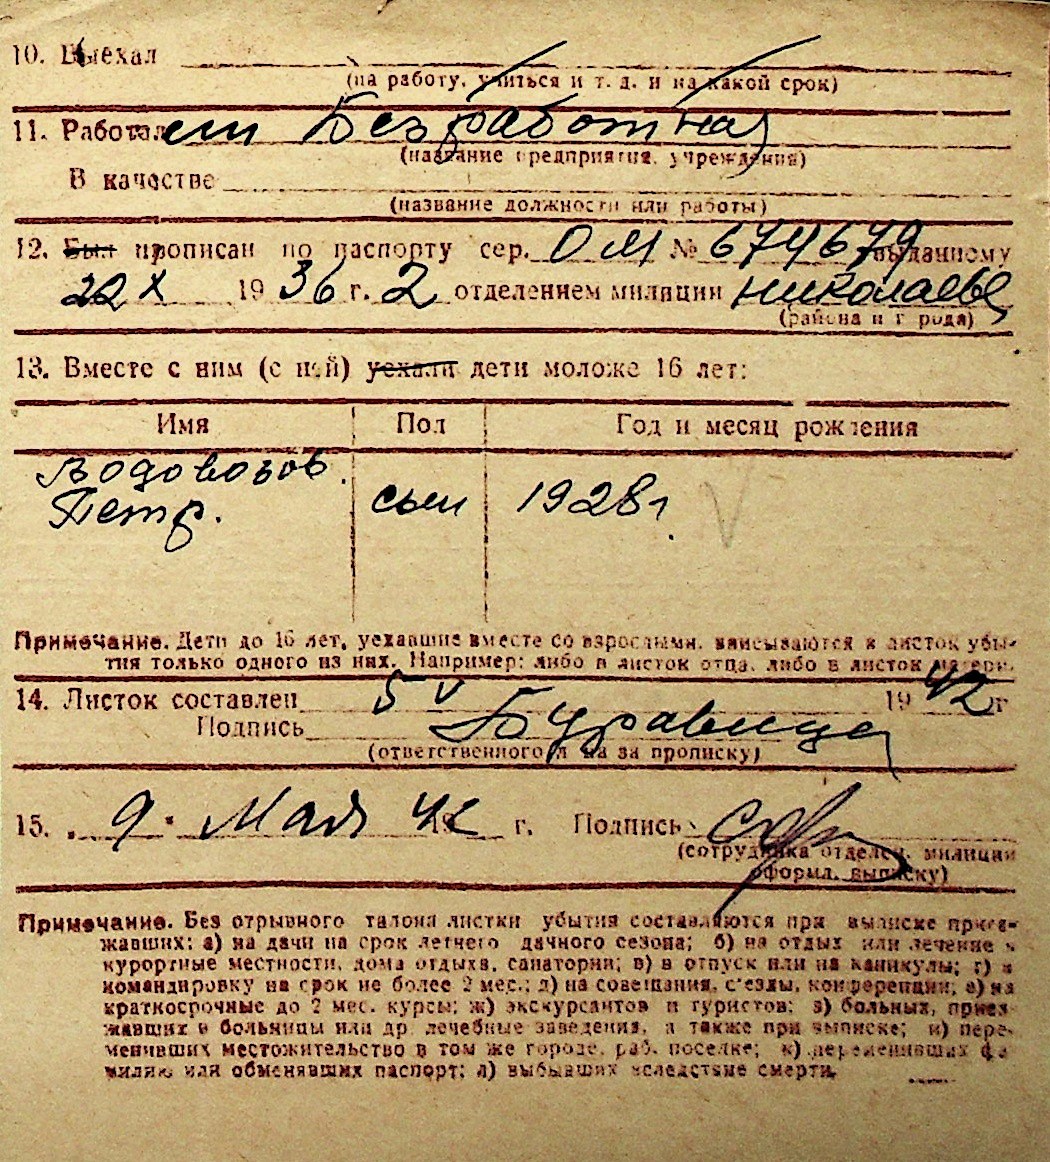 10. Выехал
(на работу, учиться и т. д. и на какой срок)
11. Работал Безработная
(название предприятия, учреждения)
В качестве
(название должности или работы)
12. Был прописан по паспорту сер. ОМ № 674679 выданному
22 X 1936 г. 2 отделением милиции Николаев
(района и города)
13. Вместе с ним (с ней) уехали дети моложе 16 лет:
Имя Пол Год и месяц рождения
Водовозов
Петр. сын 1928 г.
Примечание. Дети до 16 лет, уехавшие вместе со взрослыми, вписываются в листок убы-
тия только одного из них. Например: либо в листок отца, либо в листок матери.
14. Листок составлен 5 V 1942 г
Подпись
(ответственного л на за прописку)
15. 9 Мая 42 г. Подпись
(сотрудника отделен. милиции
оформл. выписку)
Примечание. Без отрывного талона листки убытия составляются при выписке приез-
жавших: а) на дачи на срок летнего дачного сезона; б) на отдых или лечение в
курортные местности, дома отдыха, санатории; в) в отпуск или на каникулы; г) в
командировку на срок не более 2 мес.; д) на совещания, с'езды, конференции; е) на
краткосрочные до 2 мес. курсы; ж) экскурсантов и туристов; з) больных, приез-
жавших в больницы или др. лечебные заведения, а также при выписке; и) пере-
менивших местожительство в том же городе, раб. поселке; к) переменивших фа-
милию или обменявших паспорт; л) выбывших вследствие смерти.